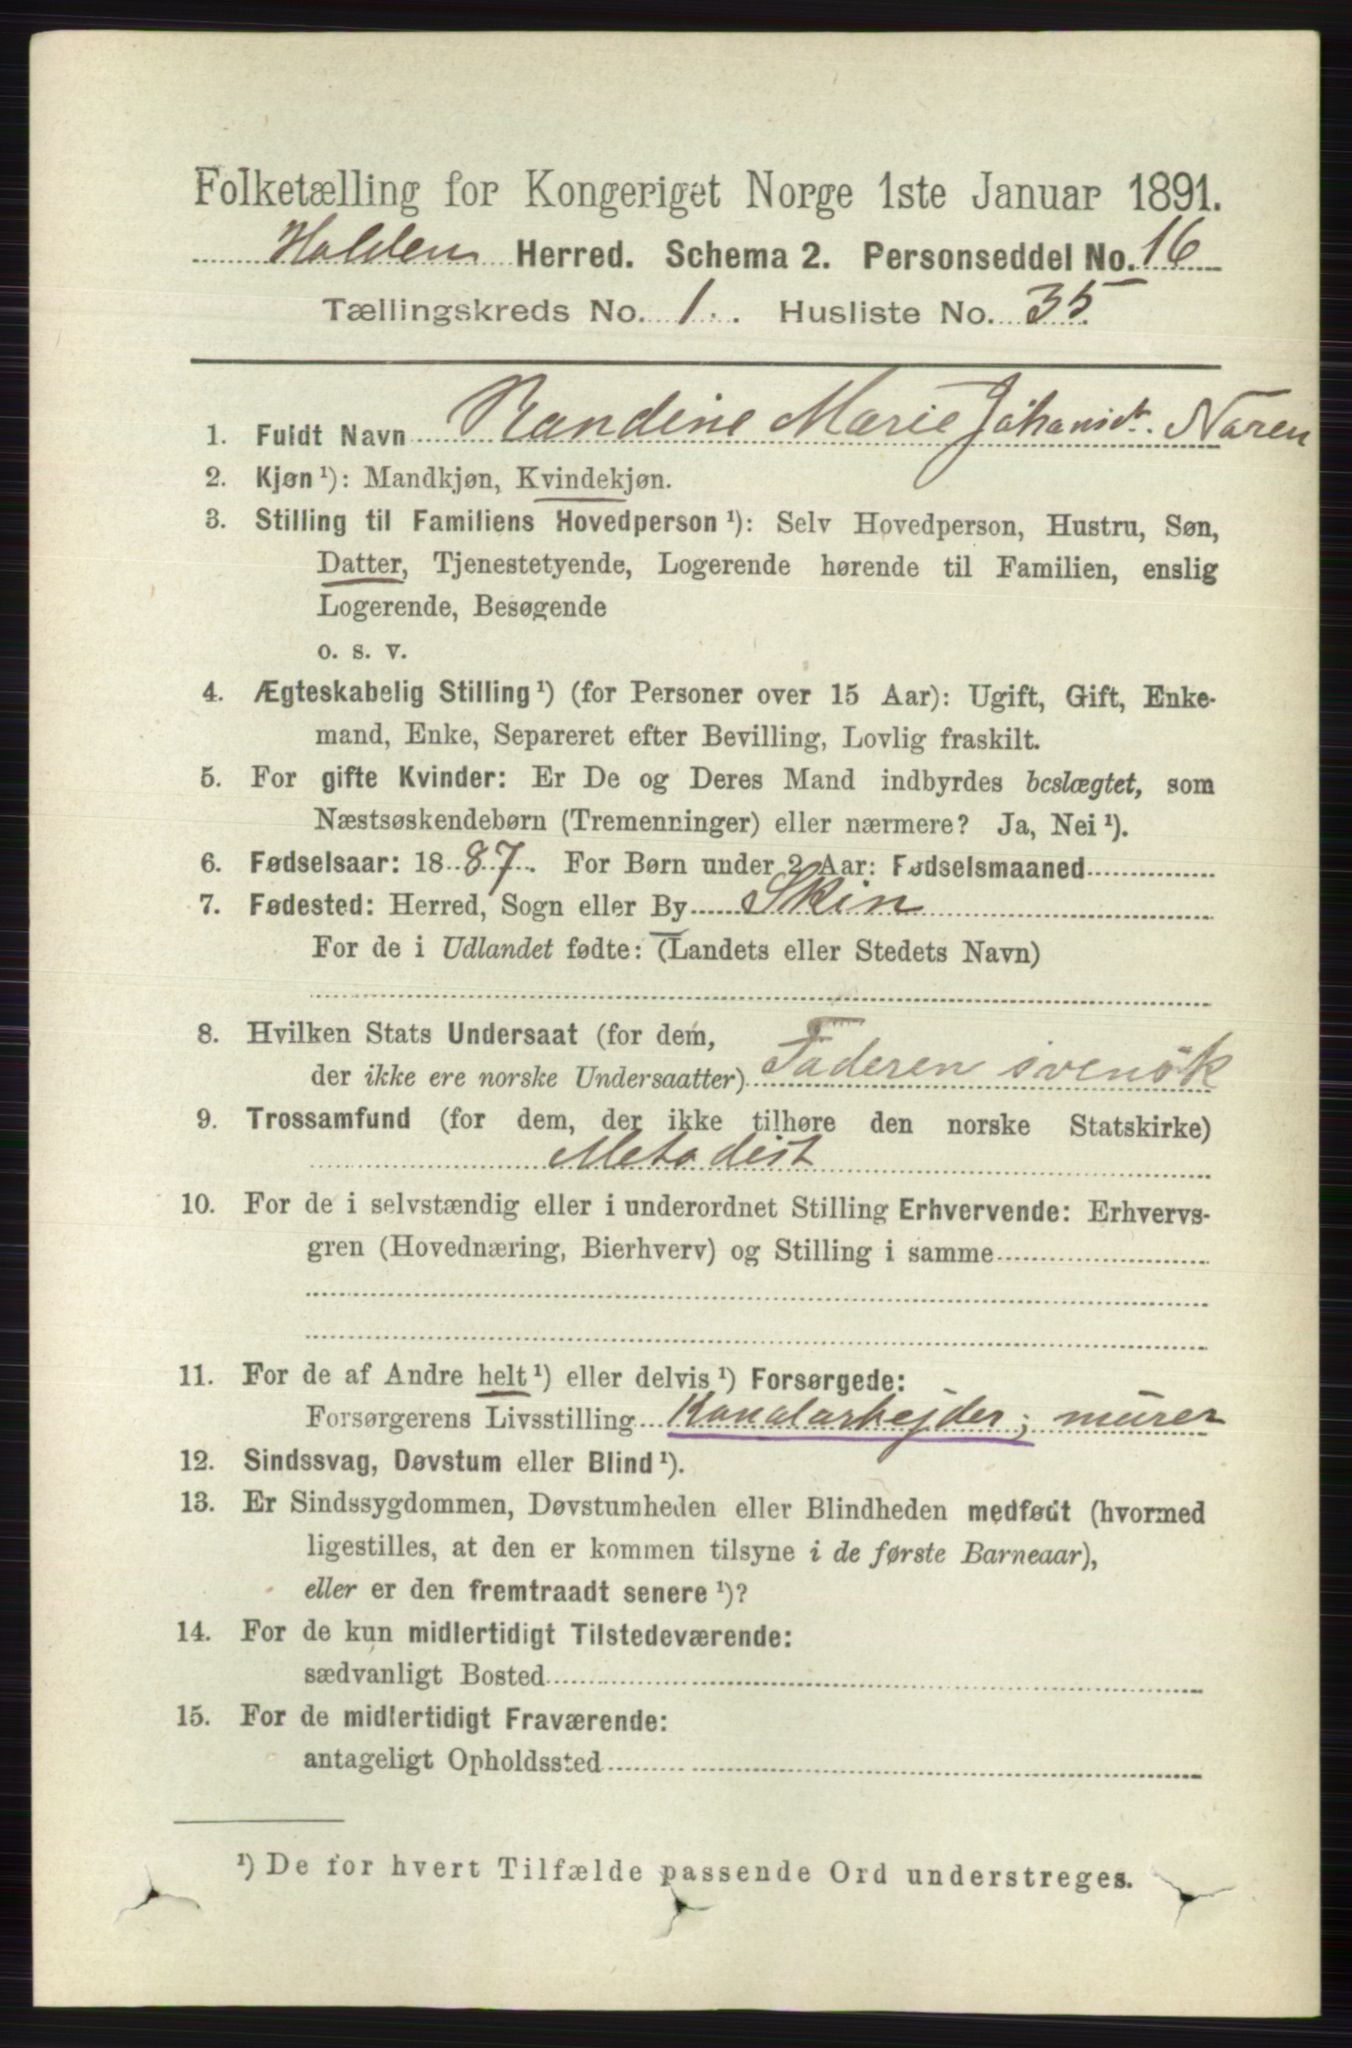 Folketælling for Kongeriget Norge 1ste Januar 1891.
Holden Herred. Schema 2. Personseddel No. 16
Tællingskreds No. 1. Husliste No. 35.
1. Fuldt Navn Randine Marie Johansdt. Noren
2. Kjøn ¹): Mandkjøn, Kvindekjøn.
3. Stilling til Familiens Hovedperson ¹): Selv Hovedperson, Hustru, Søn,
Datter, Tjenestetyende, Logerende hørende til Familien, enslig
Logerende, Besøgende
o. s. v.
4. Ægteskabelig Stilling ¹) (for Personer over 15 Aar): Ugift, Gift, Enke-
mand, Enke, Separeret efter Bevilling, Lovlig fraskilt.
5. For gifte Kvinder: Er De og Deres Mand indbyrdes beslægtet, som
Næstsøskendebørn (Tremenninger) eller nærmere? Ja, Nei ¹).
6. Fødselsaar: 1887. For Børn under 2 Aar: Fødselsmaaned
7. Fødested: Herred, Sogn eller By Skin
For de i Udlandet fødte: (Landets eller Stedets Navn)
8. Hvilken Stats Undersaat (for dem,
der ikke ere norske Undersaatter) Faderen svensk
9. Trossamfund (for dem, der ikke tilhøre den norske Statskirke)
Metodist
10. For de i selvstændig eller i underordnet Stilling Erhvervende: Erhvervs-
gren (Hovednæring, Bierhverv) og Stilling i samme
11. For de af Andre helt ¹) eller delvis ¹) Forsørgede:
Forsørgerens Livsstilling Kanalarbejder; murer
12. Sindssvag, Døvstum eller Blind ¹).
13. Er Sindssygdommen, Døvstumheden eller Blindheden medfødt (hvormed
ligestilles, at den er kommen tilsyne i de første Barneaar),
eller er den fremtraadt senere ¹)?
14. For de kun midlertidigt Tilstedeværende:
sædvanligt Bosted
15. For de midlertidigt Fraværende:
antageligt Opholdssted
¹) De for hvert Tilfælde passende Ord understreges.